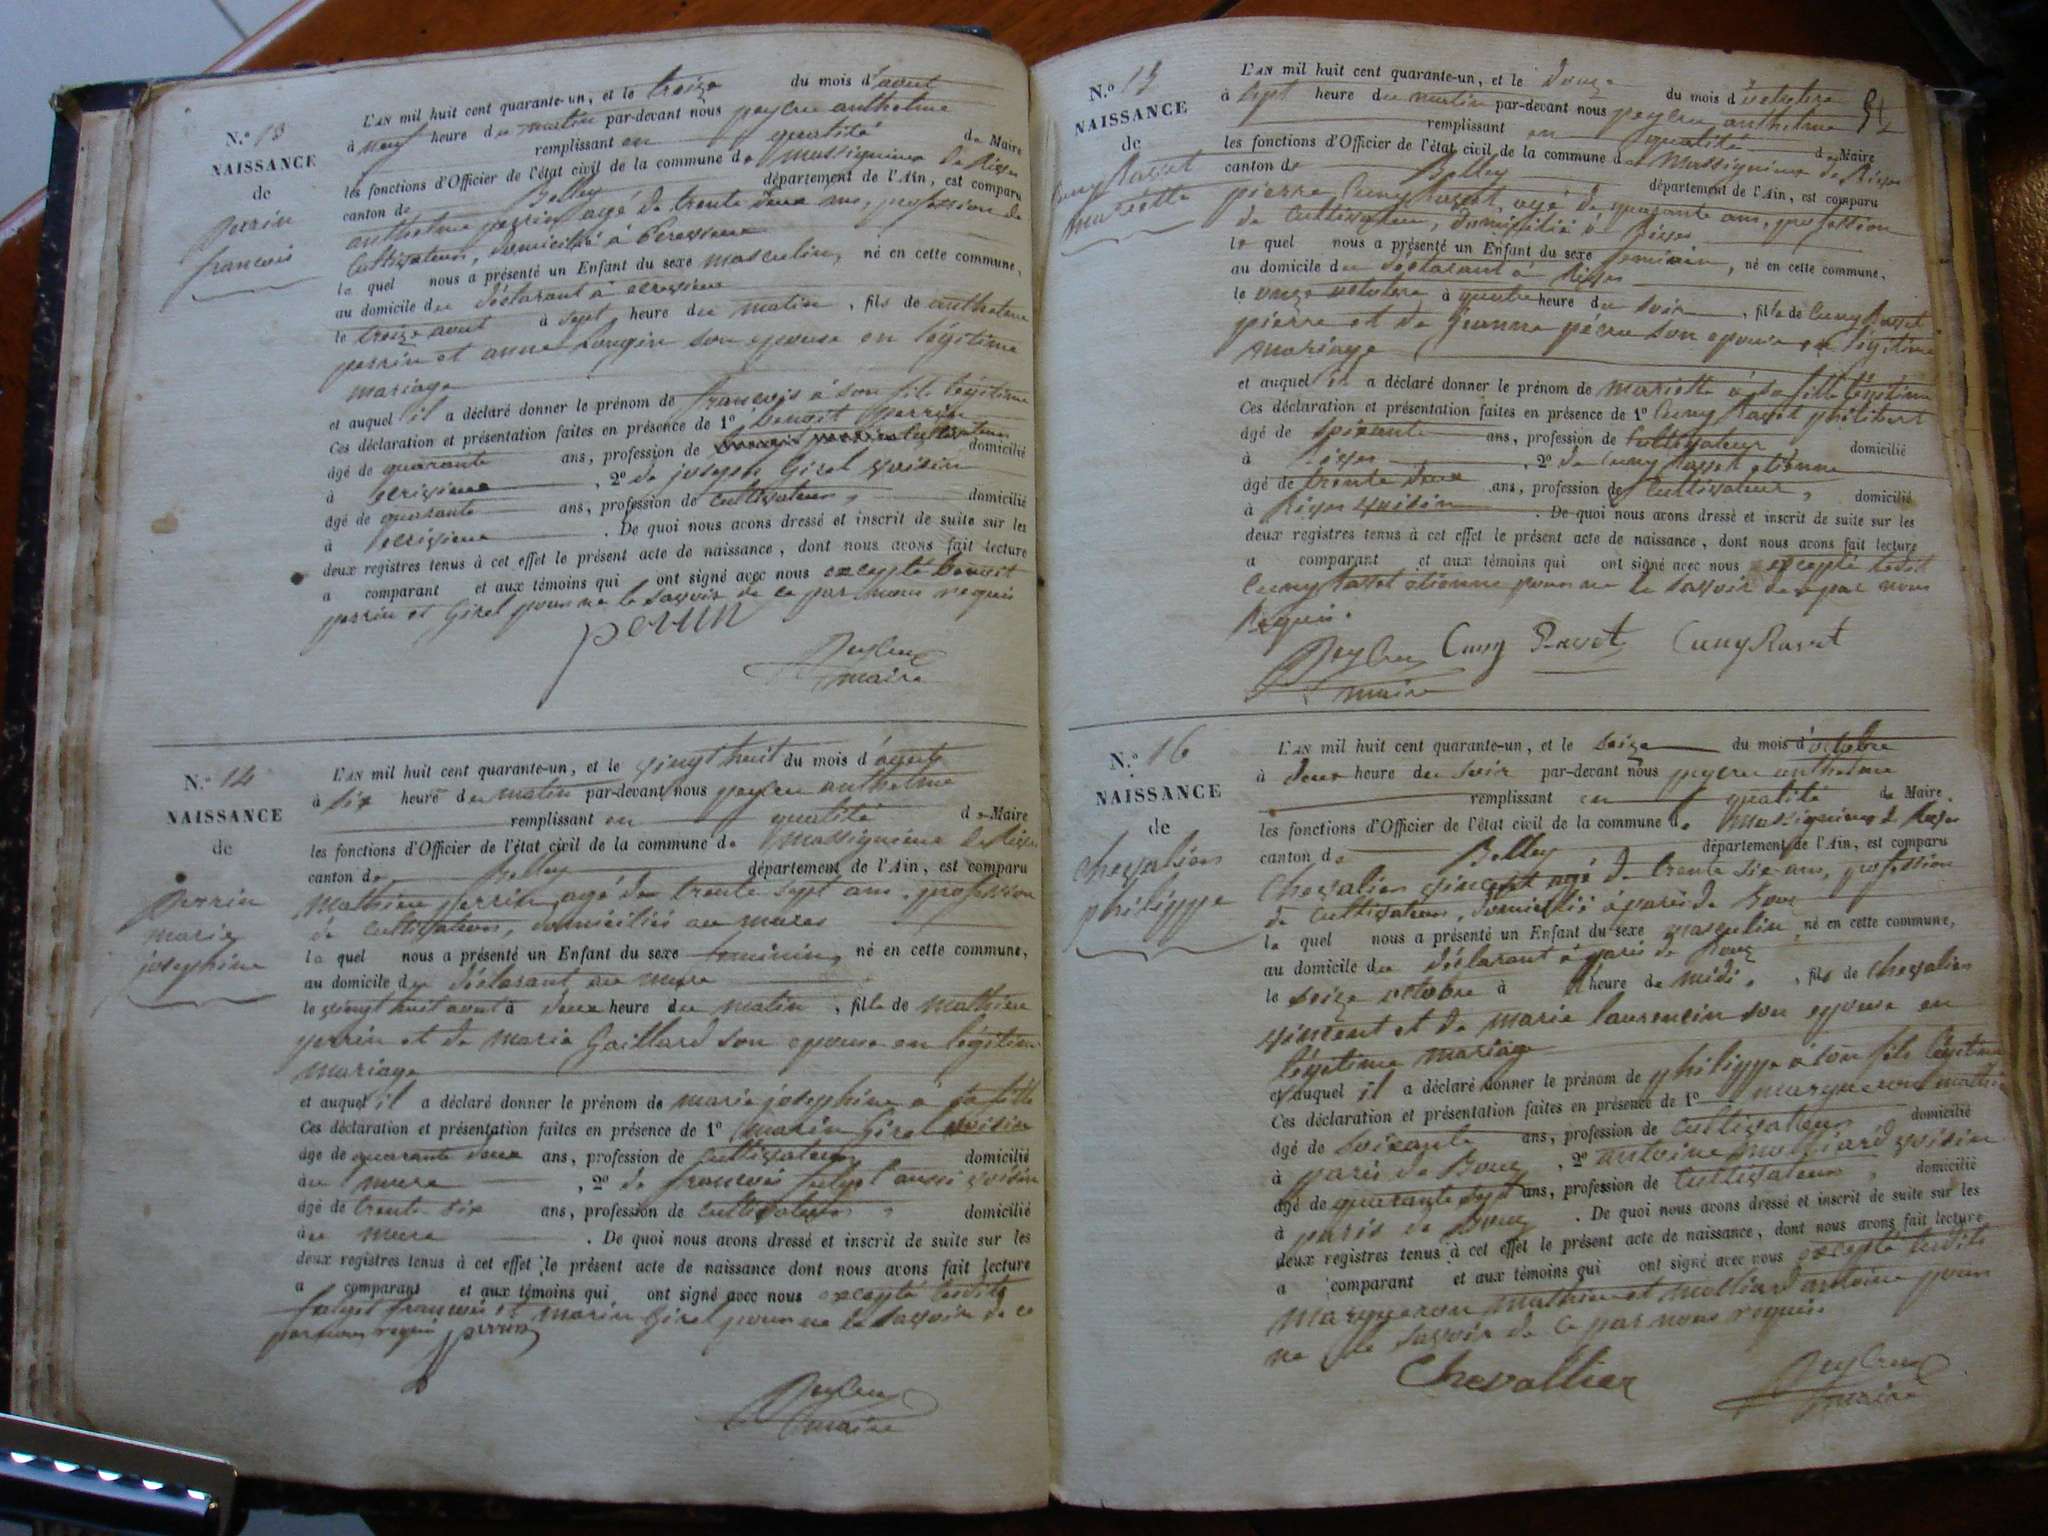 N.º 13
NAISSANCE
de
perrin
francois
L'AN mil huit cent quarante-un, et le treize du mois d'aout
à neuf heure du matin par-devant nous peyleu anthelme
remplissant en qualité de Maire
les fonctions d'Officier de l'état civil de la commune de Massignieux de Rives
canton de Belley département de l'Ain, est comparu
anthelme perrin agé de trente deux ans, profession de
Cultivateur, domicilié à
le quel nous a présenté un Enfant du sexe masculin, né en cette commune,
au domicile du déclarant à
le treize aout à sept heure du matin, fils de anthelme
perrin et anne Longin son epouse en légitime
mariage
et auquel il a déclaré donner le prénom de francois à son fils légitime
Ces déclaration et présentation faites en présence de 1º benoit perrin
âgé de quarante ans, profession de cultivateur domicilié
à , 2º de joseph Girel voisin
âgé de quarante ans, profession de cultivateur, domicilié
à . De quoi nous avons dressé et inscrit de suite sur les
deux registres tenus à cet effet le présent acte de naissance, dont nous avons fait lecture
a comparant et aux témoins qui ont signé avec nous excepté benoit
perrin et Girel pour ne le savoir de ce par nous requis
perrin
peyleu
maire
N.º 14
NAISSANCE
de
perrin
marie
josephine
L'AN mil huit cent quarante-un, et le vingt huit du mois d'aout
à six heure du matin par-devant nous peyleu anthelme
remplissant en qualité de Maire
les fonctions d'Officier de l'état civil de la commune de Massignieux de Rives
canton de Belley département de l'Ain, est comparu
Mathieu perrin agé de trente sept ans, profession
de cultivateur, domicilié au mures
le quel nous a présenté un Enfant du sexe feminin, né en cette commune,
au domicile du déclarant au mure
le vingt huit aout à deux heure du matin, fille de mathieu
perrin et de marie Gaillard son epouse en légitime
mariage
et auquel il a déclaré donner le prénom de marie josephine à sa fille
Ces déclaration et présentation faites en présence de 1º marin Girel voisin
âgé de quarante deux ans, profession de cultivateur domicilié
au mure , 2º de francois aussi voisin
âgé de trente six ans, profession de cultivateur, domicilié
au mure . De quoi nous avons dressé et inscrit de suite sur les
deux registres tenus à cet effet le présent acte de naissance dont nous avons fait lecture
a comparant et aux témoins qui ont signé avec nous excepté lesdits
francois et marin Girel pour ne le savoir de ce
par nous requis perrin
peyleu
maire
N.º 15
NAISSANCE
de
Cuny Ravet
mariette
L'AN mil huit cent quarante-un, et le douze du mois d'octobre
à sept heure du matin par-devant nous peyleu anthelme
remplissant en qualité de Maire
les fonctions d'Officier de l'état civil de la commune de Massignieux de Rives
canton de Belley département de l'Ain, est comparu
pierre Cuny Ravet, agé de quarante ans, profession
de Cultivateur, domicilié à Rives
le quel nous a présenté un Enfant du sexe feminin, né en cette commune,
au domicile du déclarant à Rives
le onze octobre à quatre heure du soir, fille de Cuny Ravet
pierre et de jeanne son epouse en légitime
mariage
et auquel il a déclaré donner le prénom de mariette à sa fille légitime
Ces déclaration et présentation faites en présence de 1º Cuny Ravet philibert
âgé de soixante ans, profession de Cultivateur domicilié
à Rives , 2º de Cuny Ravet etienne
âgé de trente deux ans, profession de Cultivateur, domicilié
à Rives voisin . De quoi nous avons dressé et inscrit de suite sur les
deux registres tenus à cet effet le présent acte de naissance, dont nous avons fait lecture
a comparant et aux témoins qui ont signé avec nous excepté ledit
Cuny Ravet etienne pour ne le savoir de ce par nous
Requis.
peyleu Cuny Ravet Cuny Ravet
maire
N.º 16
NAISSANCE
de
chevalier
philippe
L'AN mil huit cent quarante-un, et le seize du mois d'octobre
à deux heure du soir par-devant nous peyleu anthelme
remplissant en qualité de Maire
les fonctions d'Officier de l'état civil de la commune de Massignieux de Rives
canton de Belley département de l'Ain, est comparu
Chevalier vincent agé de trente six ans, profession
de cultivateur, domicilié à paris de
le quel nous a présenté un Enfant du sexe masculin, né en cette commune,
au domicile du déclarant à paris de
le seize octobre à heure de midi, fils de chevalier
vincent et de marie laurencin son epouse en
légitime mariage
et auquel il a déclaré donner le prénom de philippe à son fils légitime
Ces déclaration et présentation faites en présence de 1º margueron mathieu
âgé de soixante ans, profession de cultivateur domicilié
à paris de , 2º antoine molliard voisin
âgé de quarante sept ans, profession de Cultivateur, domicilié
à paris de . De quoi nous avons dressé et inscrit de suite sur les
deux registres tenus à cet effet le présent acte de naissance, dont nous avons fait lecture
a comparant et aux témoins qui ont signé avec nous excepté lesdits
Margueron mathieu et molliard antoine pour
ne le savoir de ce par nous requis
Chevallier
peyleu
maire